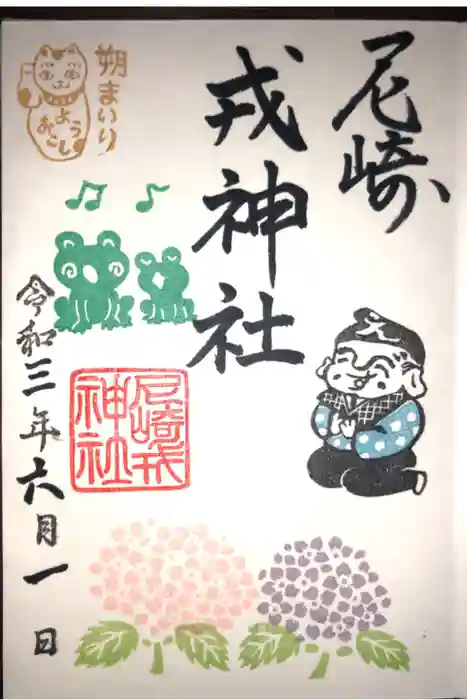 尼崎
戎神社
朔まいり
ようおこし
尼崎戎
神社
令和三年六月一日